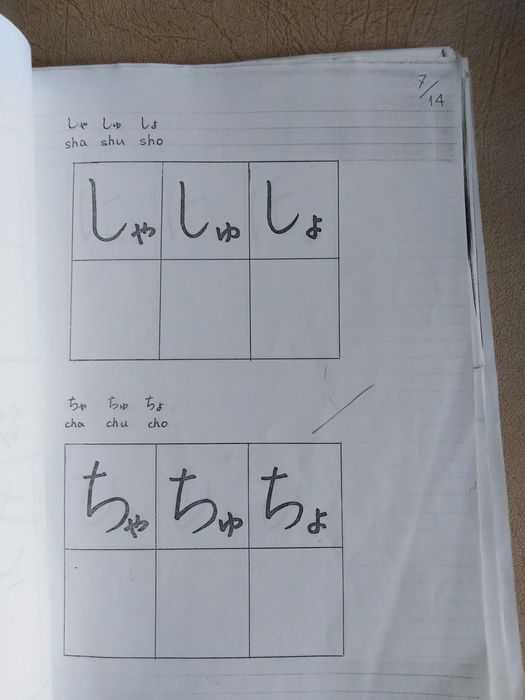 7/14
しゃ しゅ しょ
sha shu sho
しゃ しゅ しょ
ちゃ ちゅ ちょ
cha chu cho
ちゃ ちゅ ちょ